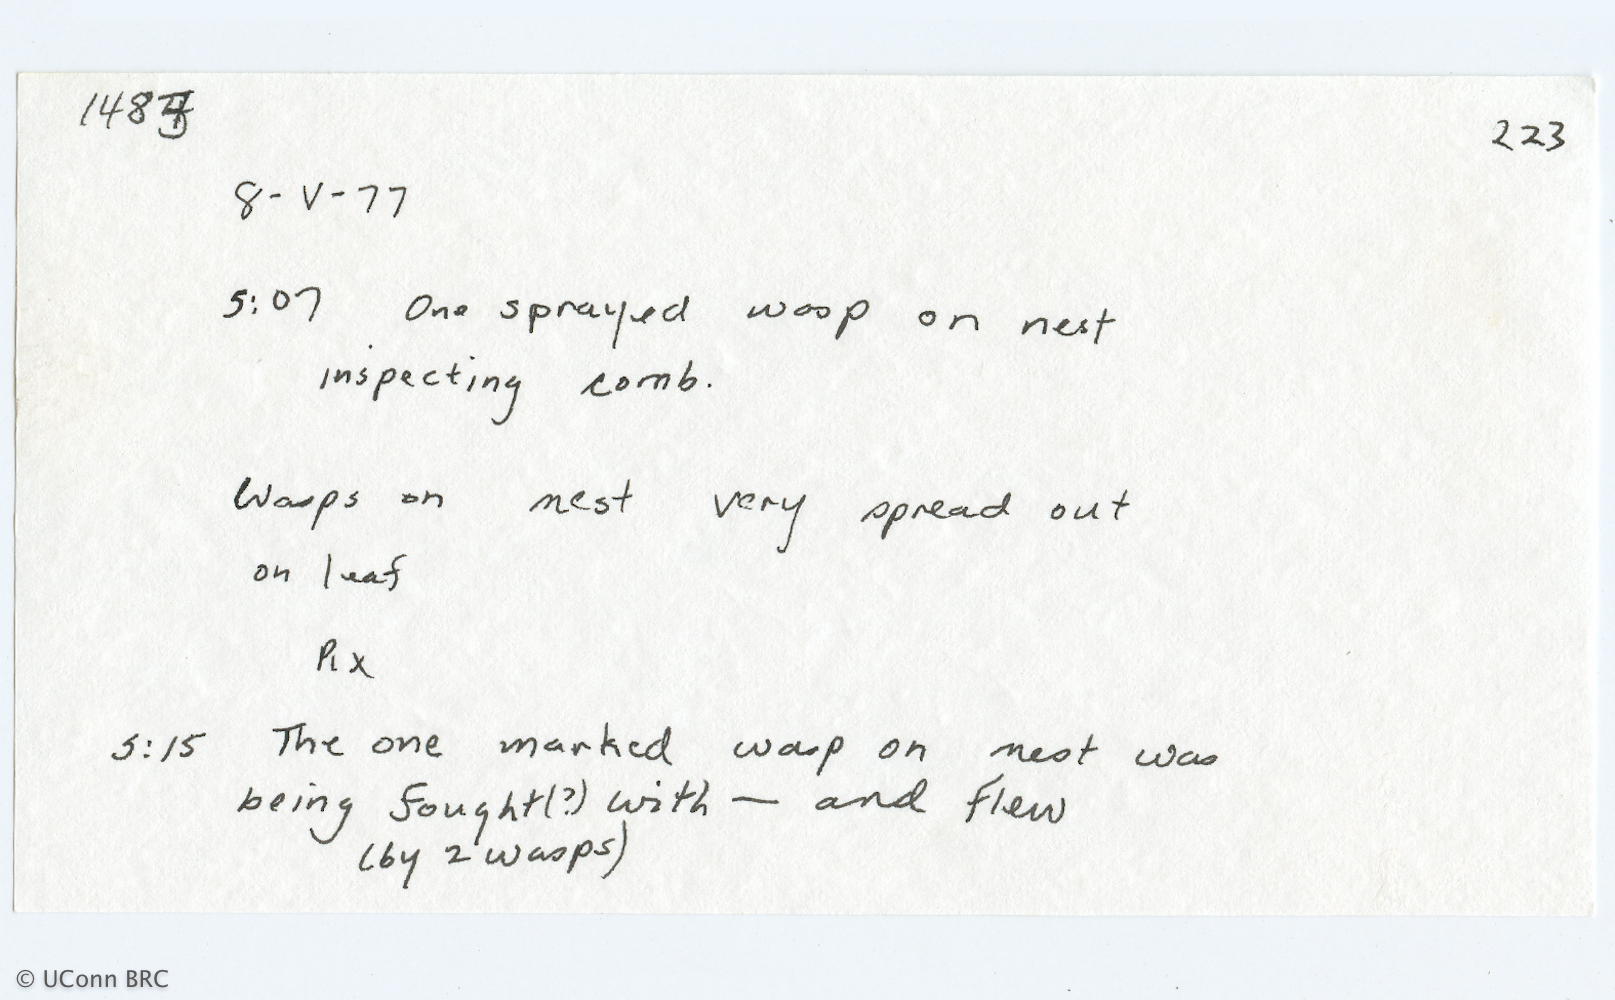 148
223
8-V-77
5:07 One sprayed wasp on nest
inspecting comb.
Wasps on nest very spread out
on leaf
Pix
5:15 The one marked wasp on nest was
being fought(?) with — and flew
(by 2 wasps)
© UConn BRC